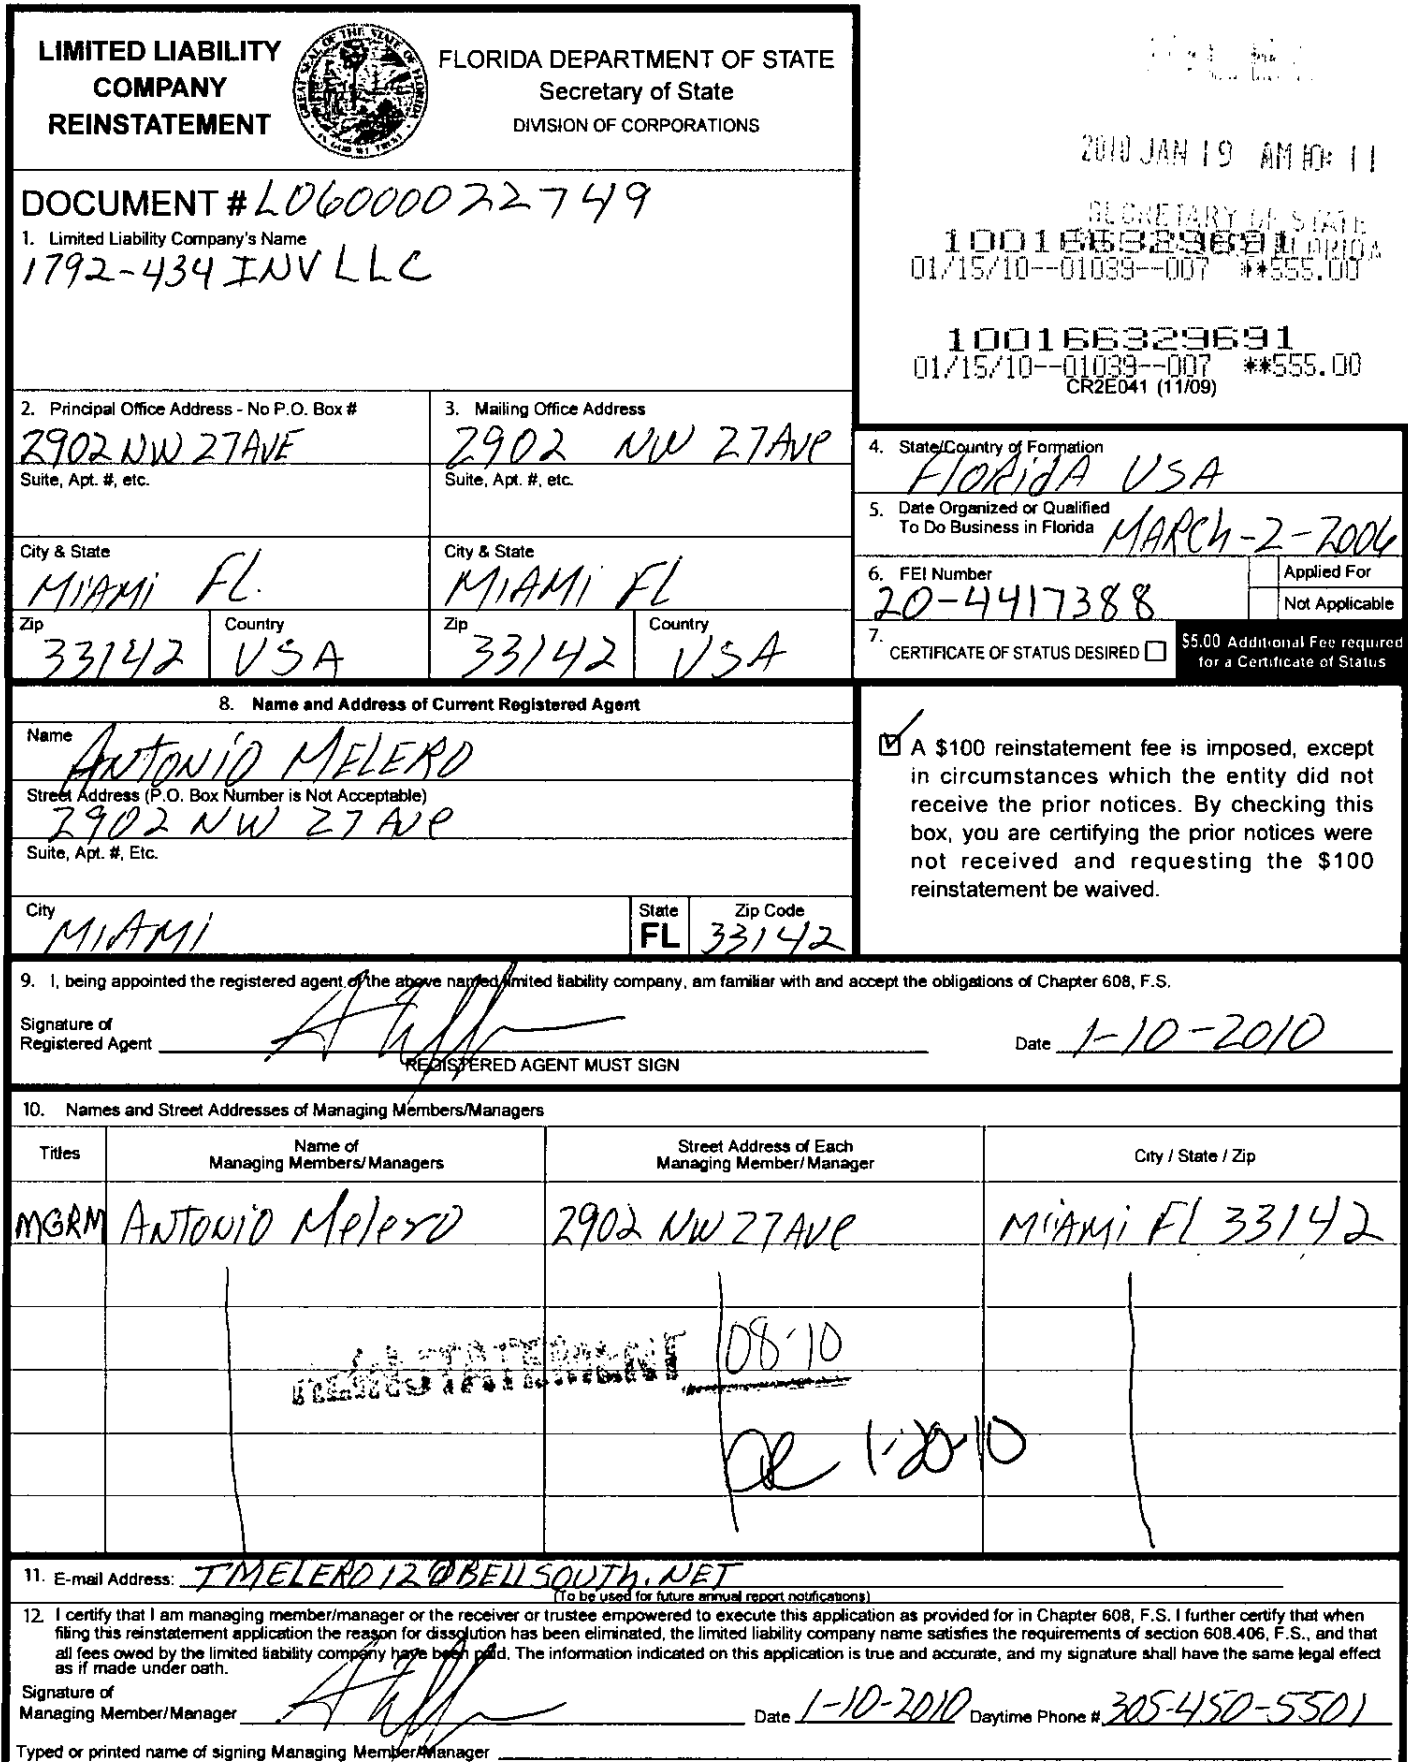 LIMITED LIABILITY
COMPANY
REINSTATEMENT
FLORIDA DEPARTMENT OF STATE
Secretary of State
DIVISION OF CORPORATIONS
2010 JAN 19 AM 10: 11
SECRETARY OF STATE
FLORIDA
100166329691
01/15/10--01039--007 **555.00
100166329691
01/15/10--01039--007 **555.00
CR2E041 (11/09)
DOCUMENT # L06000022749
1. Limited Liability Company's Name
1792-434 INV LLC
2. Principal Office Address - No P.O. Box #
2902 NW 27 AVE
Suite, Apt. #, etc.
City & State
MIAMI FL.
Zip
33142
Country
USA
3. Mailing Office Address
2902 NW 27 AVe
Suite, Apt. #, etc.
City & State
MIAMI FL
Zip
33142
Country
USA
4. State/Country of Formation
FloRidA USA
5. Date Organized or Qualified
To Do Business in Florida MARCh-2-2006
6. FEI Number
20-4417388
Applied For
Not Applicable
7. CERTIFICATE OF STATUS DESIRED
$5.00 Additional Fee required
for a Certificate of Status
8. Name and Address of Current Registered Agent
Name
ANTONIO MELERO
Street Address (P.O. Box Number is Not Acceptable)
2902 NW 27 AVe
Suite, Apt. #, Etc.
City
MIAMI
State
FL
Zip Code
33142
A $100 reinstatement fee is imposed, except
in circumstances which the entity did not
receive the prior notices. By checking this
box, you are certifying the prior notices were
not received and requesting the $100
reinstatement be waived.
9. I, being appointed the registered agent of the above named limited liability company, am familiar with and accept the obligations of Chapter 608, F.S.
Signature of
Registered Agent
Date 1-10-2010
REGISTERED AGENT MUST SIGN
10. Names and Street Addresses of Managing Members/Managers
Titles
Name of
Managing Members/Managers
Street Address of Each
Managing Member/Manager
City / State / Zip
MGRM ANTONIO Melero 2902 NW 27 AVe MIAMi Fl 33142
REINSTATEMENT 08-10
1-20-10
11. E-mail Address: TMELERO12@BELLSOUTh.NET
(To be used for future annual report notifications)
12. I certify that I am managing member/manager or the receiver or trustee empowered to execute this application as provided for in Chapter 608, F.S. I further certify that when
filing this reinstatement application the reason for dissolution has been eliminated, the limited liability company name satisfies the requirements of section 608.406, F.S., and that
all fees owed by the limited liability company have been paid. The information indicated on this application is true and accurate, and my signature shall have the same legal effect
as if made under oath.
Signature of
Managing Member/Manager
Date 1-10-2010 Daytime Phone # 305-450-5501
Typed or printed name of signing Managing Member/Manager